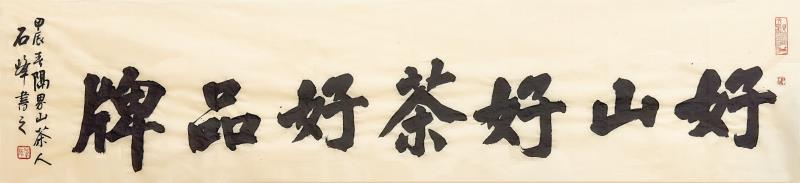 好山好茶好品牌
甲辰春隅界山茶人
石峰書之